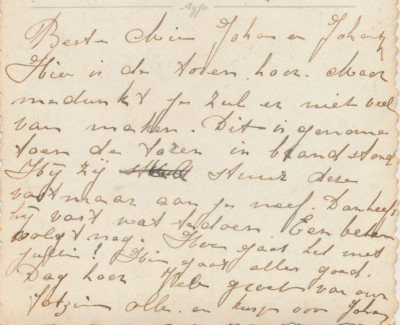 Beste Mien Johan en Johan
Hier is de toren hoor. Maar
me dunkt je zul er niet veel
van maken. Dit is genomen
toen de toren in brand stond
Hij zij stuur deze
vast maar aan je neef. Dan heeft
hij vast wat te doen. Een
volgt nog. Hoe gaat het met
jullie! Hier gaat alles goed.
Dag hoor Vele groet van ons
alle. en kusje voor Johan